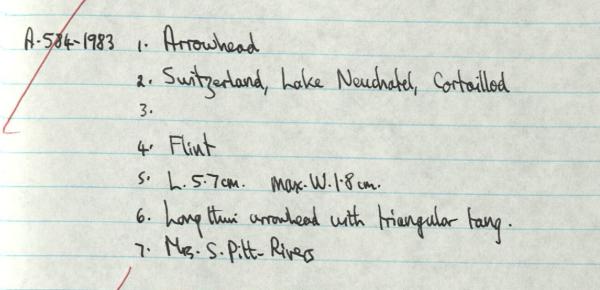 A.584-1983 1. Arrowhead
2. Switzerland, Lake Neuchatel, Cortaillod
3.
4. Flint
5. L. 5.7cm. max. W. 1.8 cm.
6. Long thin arrowhead with triangular tang.
7. Mrs. S. Pitt-Rivers